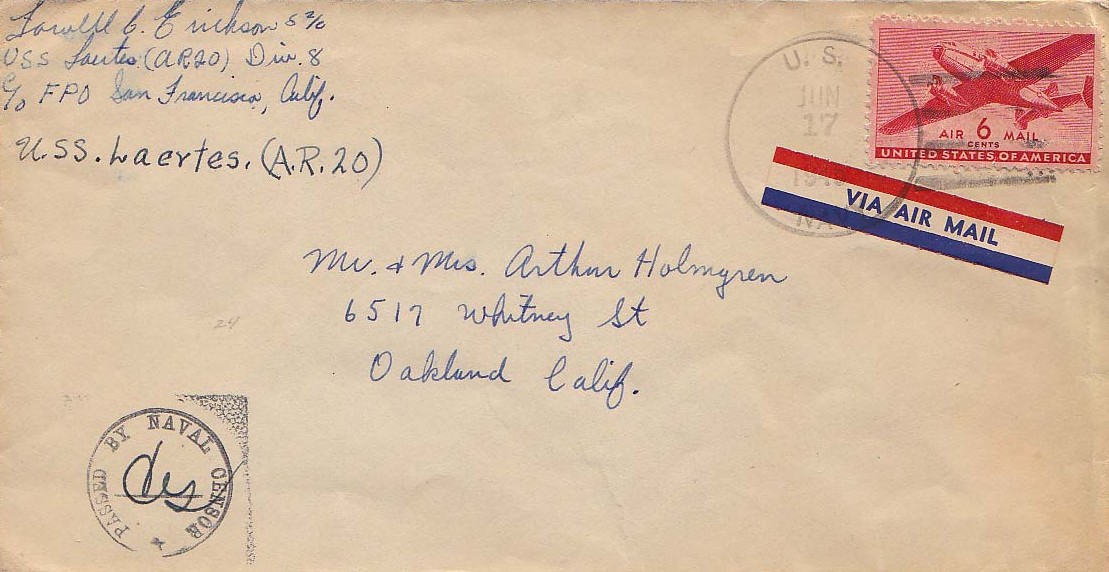 Lowell C. Erickson S 2/c
USS Laertes (AR20) Div. 8
c/o FPO San Francisco, Calif.
U.S.S. Laertes. (A.R.20)
U. S.
JUN
17
NAVY
AIR 6 MAIL
CENTS
UNITED STATES OF AMERICA
VIA AIR MAIL
Mr. & Mrs. Arthur Holmgren
6517 Whitney St
Oakland Calif.
24
PASSED BY NAVAL CENSOR